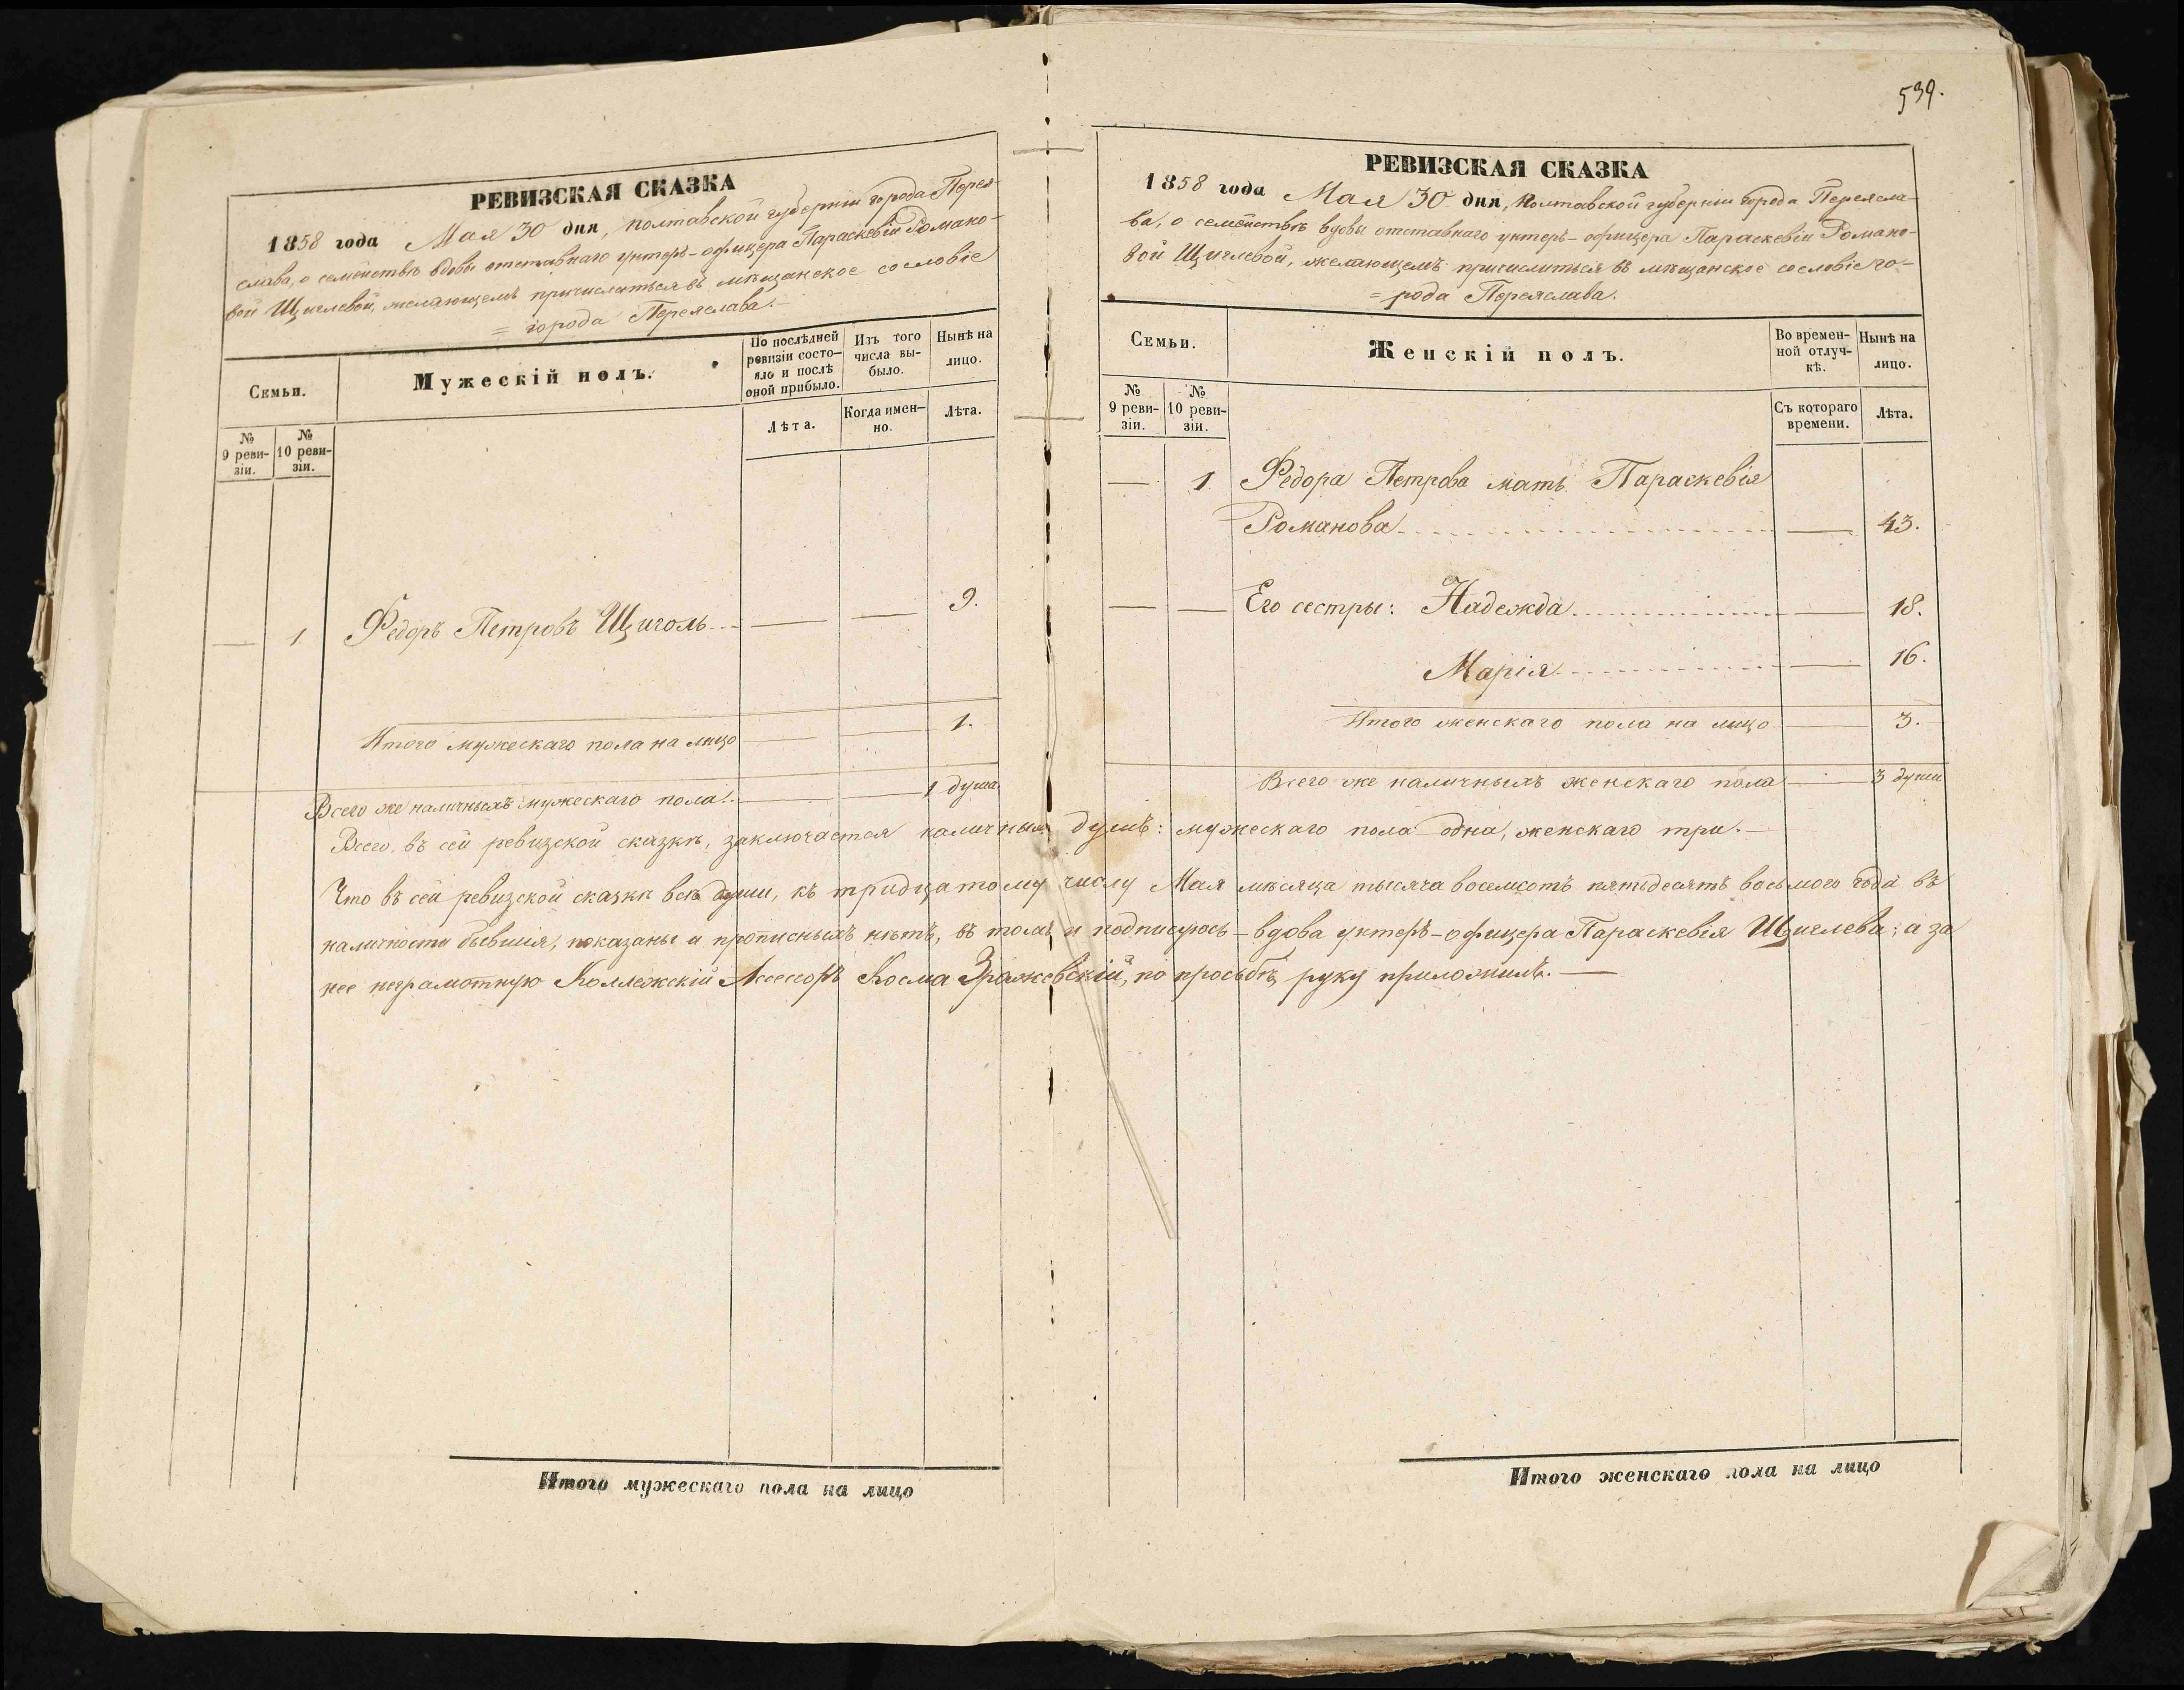 539.
РЕВИЗСКАЯ СКАЗКА
1858 года Мая 30 дня, Полтавской губерніи города Перея-
слава, о семействѣ вдовы отставнаго унтеръ-офицера Параскевіи Романо-
вой Щиглевой, желающемъ причислиться въ мѣщанское сословіе
= города Переяслава. –
Семьи.
Мужескій полъ.
По послѣдней ревизіи состо-
яло и послѣ
оной прибыло.
Изъ того
числа вы-
было.
Нынѣ на
лицо.
№
9 реви-
зіи.
№
10 реви-
зіи.
Лѣта.
Когда имен-
но.
Лѣта.
— 1 Федоръ Петровъ Щиголь — — 9.
Итого мужескаго пола на лицо — — 1.
Всего же наличныхъ мужескаго пола: — — 1 душа
РЕВИЗСКАЯ СКАЗКА
1858 года Мая 30 дня, Полтавской губерніи города Переясла-
ва, о семействѣ вдовы отставнаго унтеръ-офицера Параскевіи Романо-
вой Щиглевой, желающемъ причислиться въ мѣщанское сословіе го-
= рода Переяслава.
Семьи.
Женскій полъ.
Во времен-
ной отлуч-
кѣ.
Нынѣ на
лицо.
№
9 реви-
зіи.
№
10 реви-
зіи.
Съ котораго
времени.
Лѣта.
— 1. Федора Петрова мать Параскевія
Романова — 43.
— — Его сестры: Надежда — 18.
Марія — 16.
Итого женскаго пола на лицо — 3.
Всего же наличныхъ женскаго пола — 3 души
Всего, въ сей ревизской сказкѣ, заключается наличныхъ душъ: мужескаго пола одна, женскаго три. –
Что въ сей ревизской сказкѣ всѣ души, къ тридцатому числу Мая мѣсяца тысяча восемсотъ пятьдесятъ восьмого года въ
наличности бывшія, показаны и прописныхъ нѣтъ, въ томъ и подписуюсь – вдова унтеръ-офицера Параскевія Щиглева; а за
нее неграмотную Коллежскій Ассесоръ Косма Зражевскій, по просьбѣ, руку приложилъ. —
Итого мужескаго пола на лицо
Итого женскаго пола на лицо